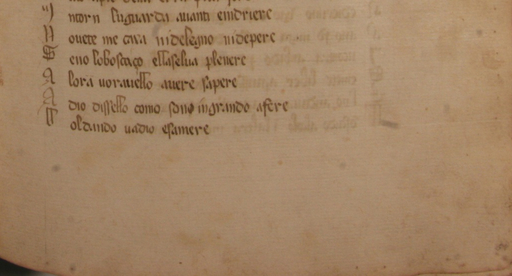 ntorn suguarda auanti endriere
N ouete me cara nidelegno nidepere
S eno loboscaço ellaselua pleuere
A lora uorauello auere sapere
A dio dissello como sono ingrando afere
V oldando uadio esamere